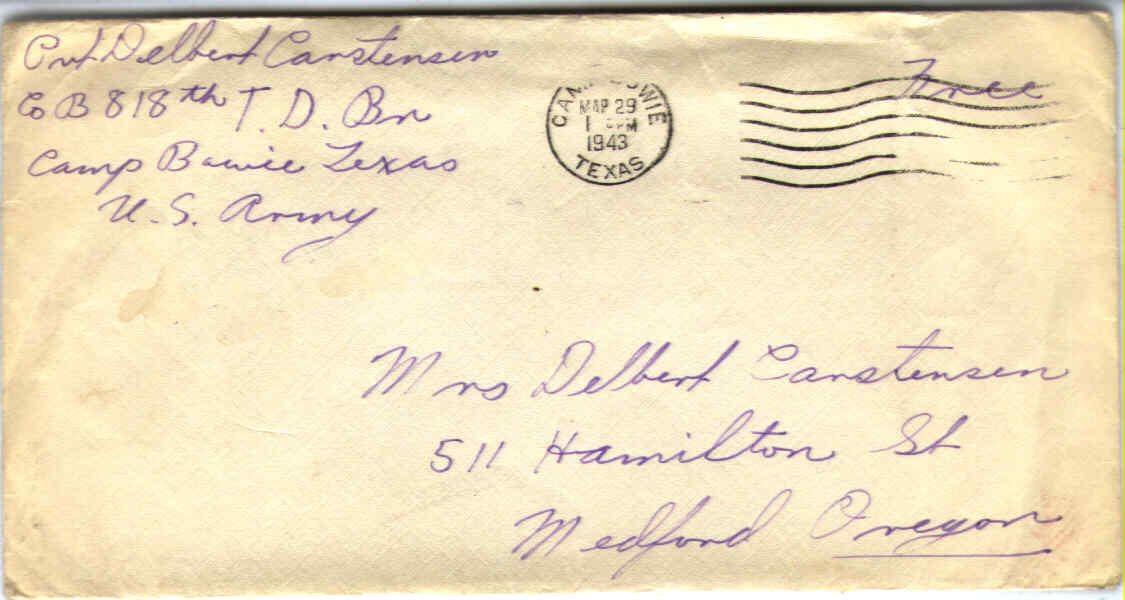 Pvt Delbert Carstensen
Co B 818th T. D. Bn
Camp Bowie Texas
U. S. Army
CAMP BOWIE
MAR 29
1 PM
1943
TEXAS
Free
Mrs Delbert Carstensen
511 Hamilton St
Medford Oregon